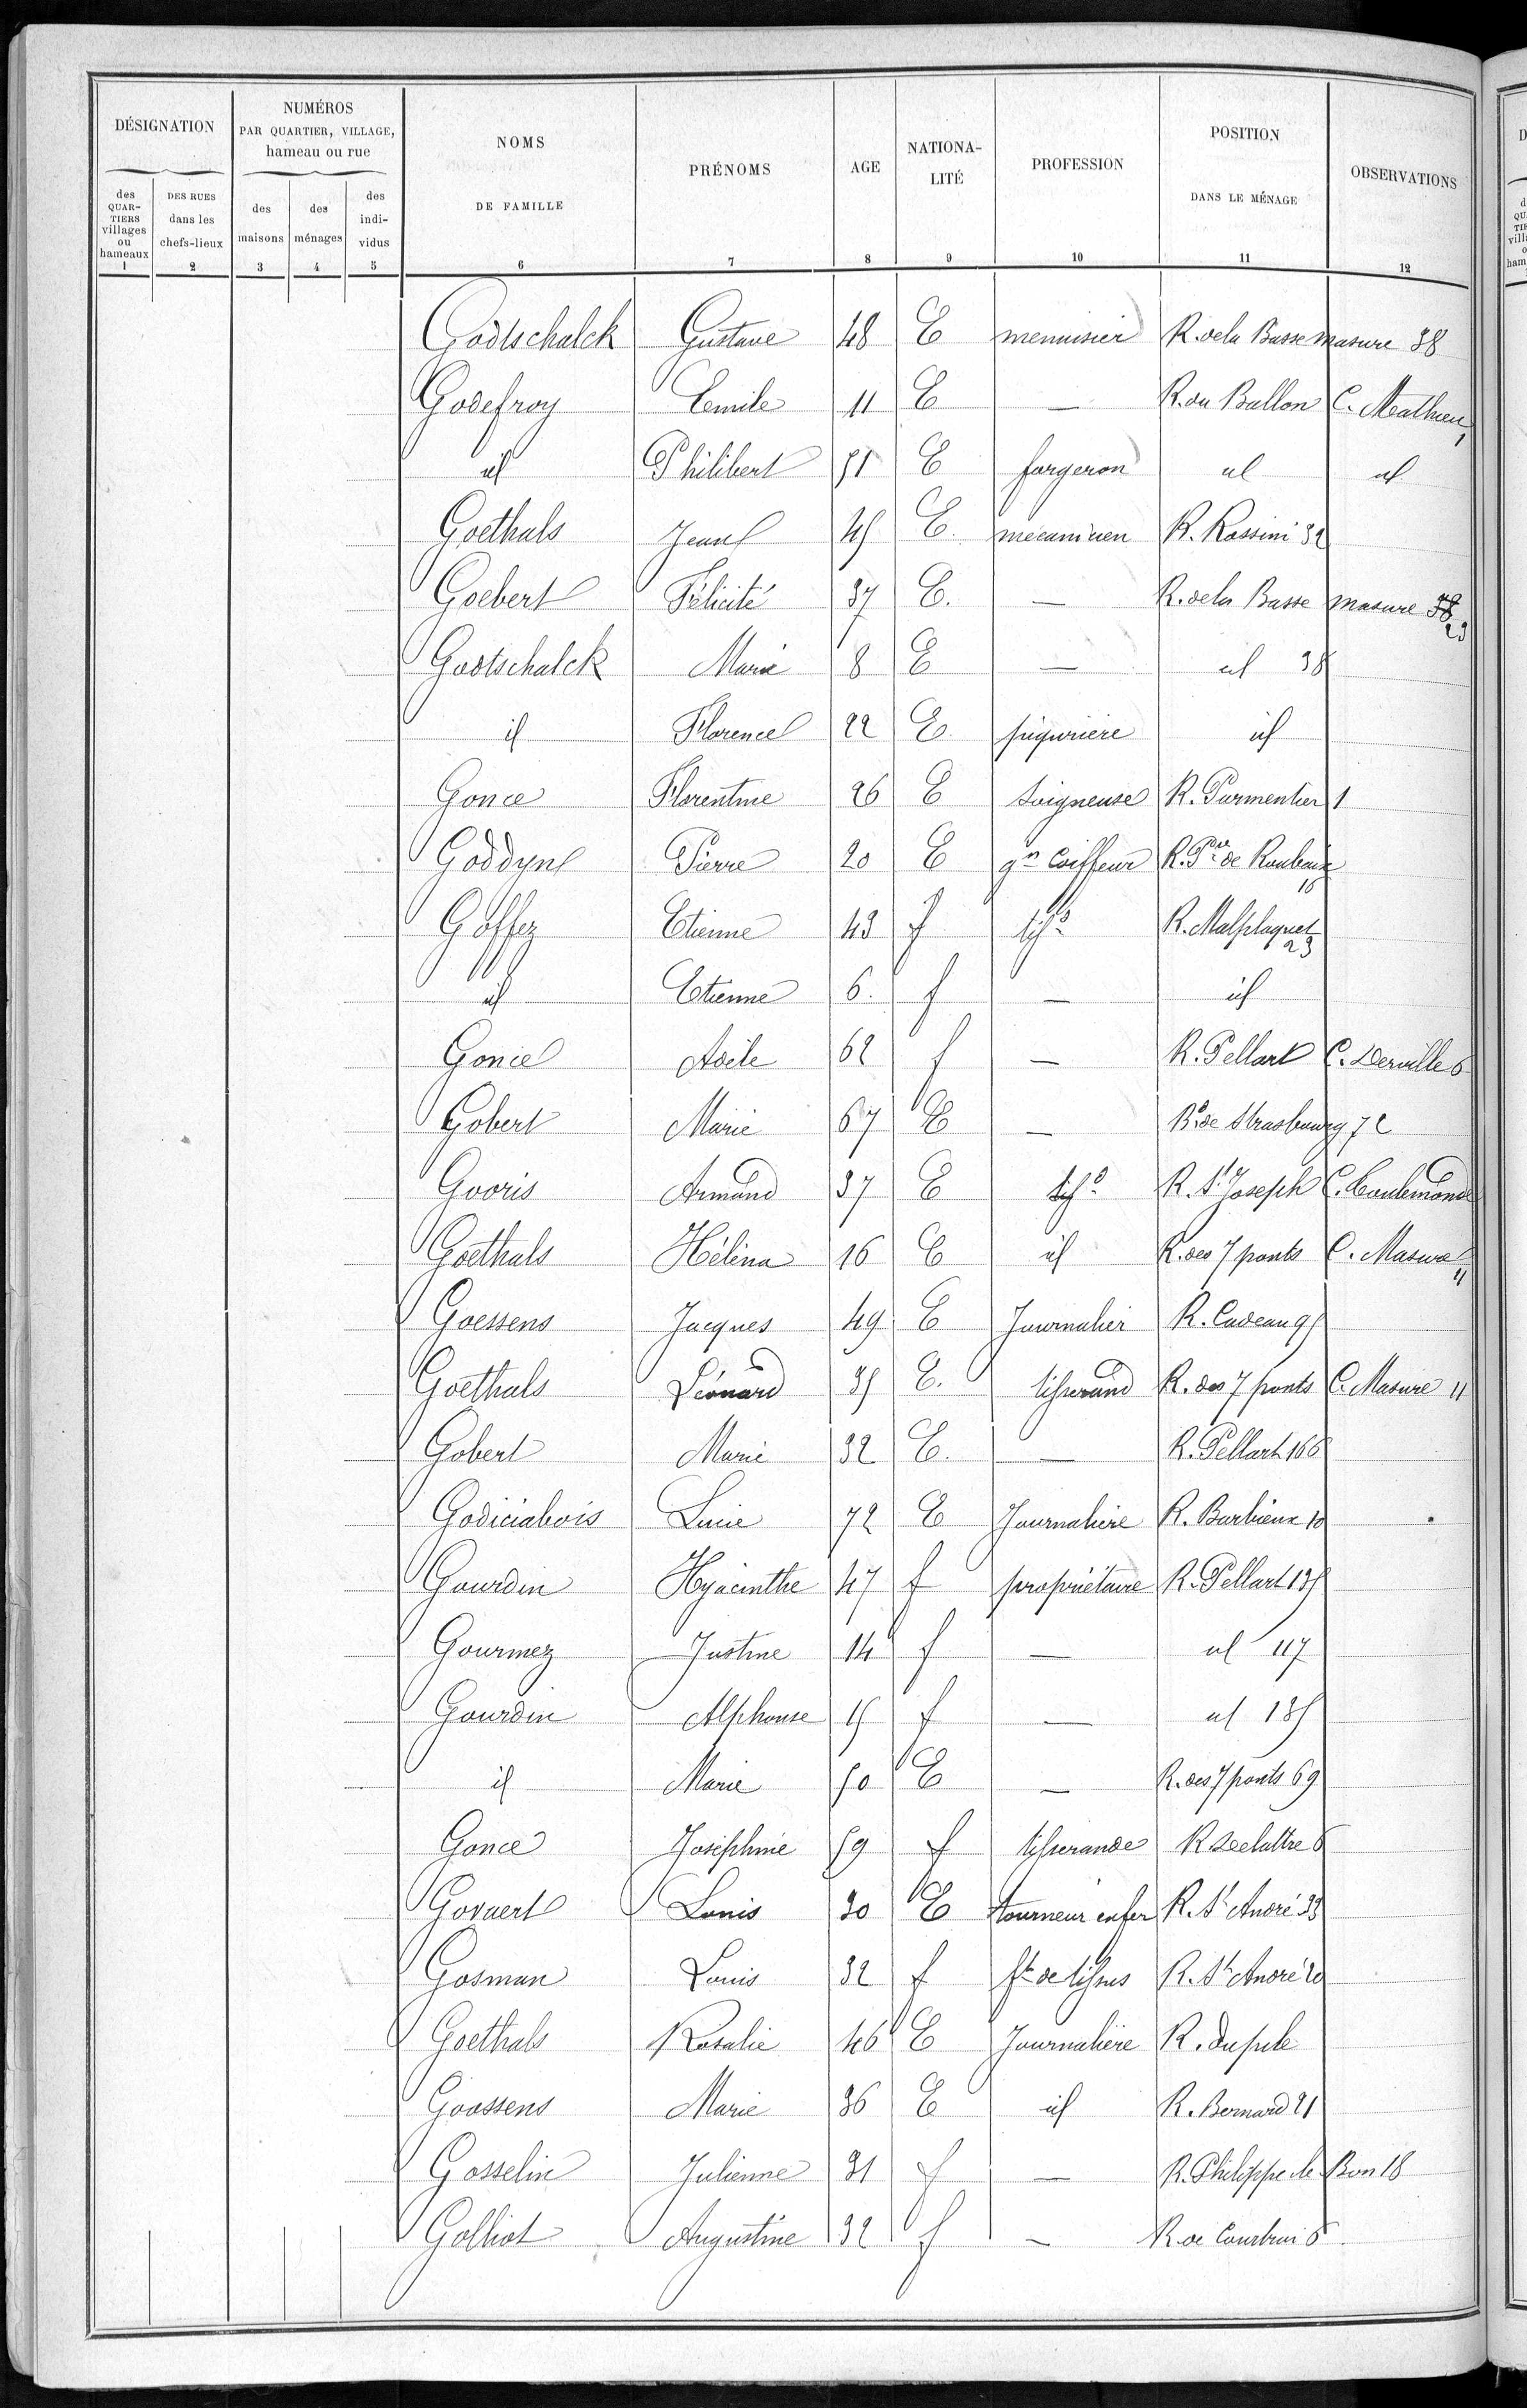 DÉSIGNATION
NUMÉROS
PAR QUARTIER, VILLAGE,
hameau ou rue
NOMS
DE FAMILLE
PRÉNOMS
AGE
NATIONA-
LITÉ
PROFESSION
POSITION
DANS LE MÉNAGE
OBSERVATIONS
des QUAR-TIERS villages ou hameaux
DES RUES dans les chefs-lieux
des maisons
des ménages
des indi-vidus
1 2 3 4 5 6 7 8 9 10 11 12
Godtschalck Gustave 48 E menuisier R. de la Basse masure 38
Godefroy Emile 11 E — R. du Ballon C. Mathieu 1
id Philibert 51 E forgeron id id
Goethals Jean 45 E. mecanicien R. Rossini 32
Goebert Félicité 37 E. — R. de la Basse masure 29
Godtschalck Marie 8 E — id 38
id Florence 22 E piqurière id
Gonce Florentine 26 E Soigneuse R. Parmentier 1
Goddyn Pierre 20 E gn Coiffeur R. Pre de Roubaix 16
Goffez Etienne 43 f tissd R. Malplaquet 23
id Etienne 6. f — id
Gonce Adèle 62 f — R. Pellart C. Derville 6
Gobert Marie 67 E — Bd de Strasbourg 72
Gooris Armand 37 E tissd R. St Joseph C. Coulemonde
Goethals Hélèna 16 E id R. des 7 ponts C. Masure 11
Goessens Jacques 49 E Journalier R. Cadeau 95
Goethals Léonard 35 E. tisserand R. des 7 ponts C. Masure 11
Gobert Marie 32 E. — R. Pellart 166
Godiciabois Lucie 72 E Journalière R. Barbieux 10
Gourdin Hyacinthe 47 f propriétaire R. Pellart 135
Gourmez Justine 14 f — id 117
Gourdin Alphonse 15 f — id 135
id Marie 50 E — R. des 7 ponts 69
Gonce Joséphine 59 f tisserande R. Delattre 6
Govaert Louis 30 E tourneur en fer R. St André 33
Gosman Louis 32 f ft de tissus R. St André 20
Goethals Rosalie 46 E Journalière R. du pile
Goossens Marie 36 E id R. Bernard 21
Gosselin Julienne 31 f — R. Philippe le Bon 18
Golliot Augustine 32 f — R. de Courtrai 6